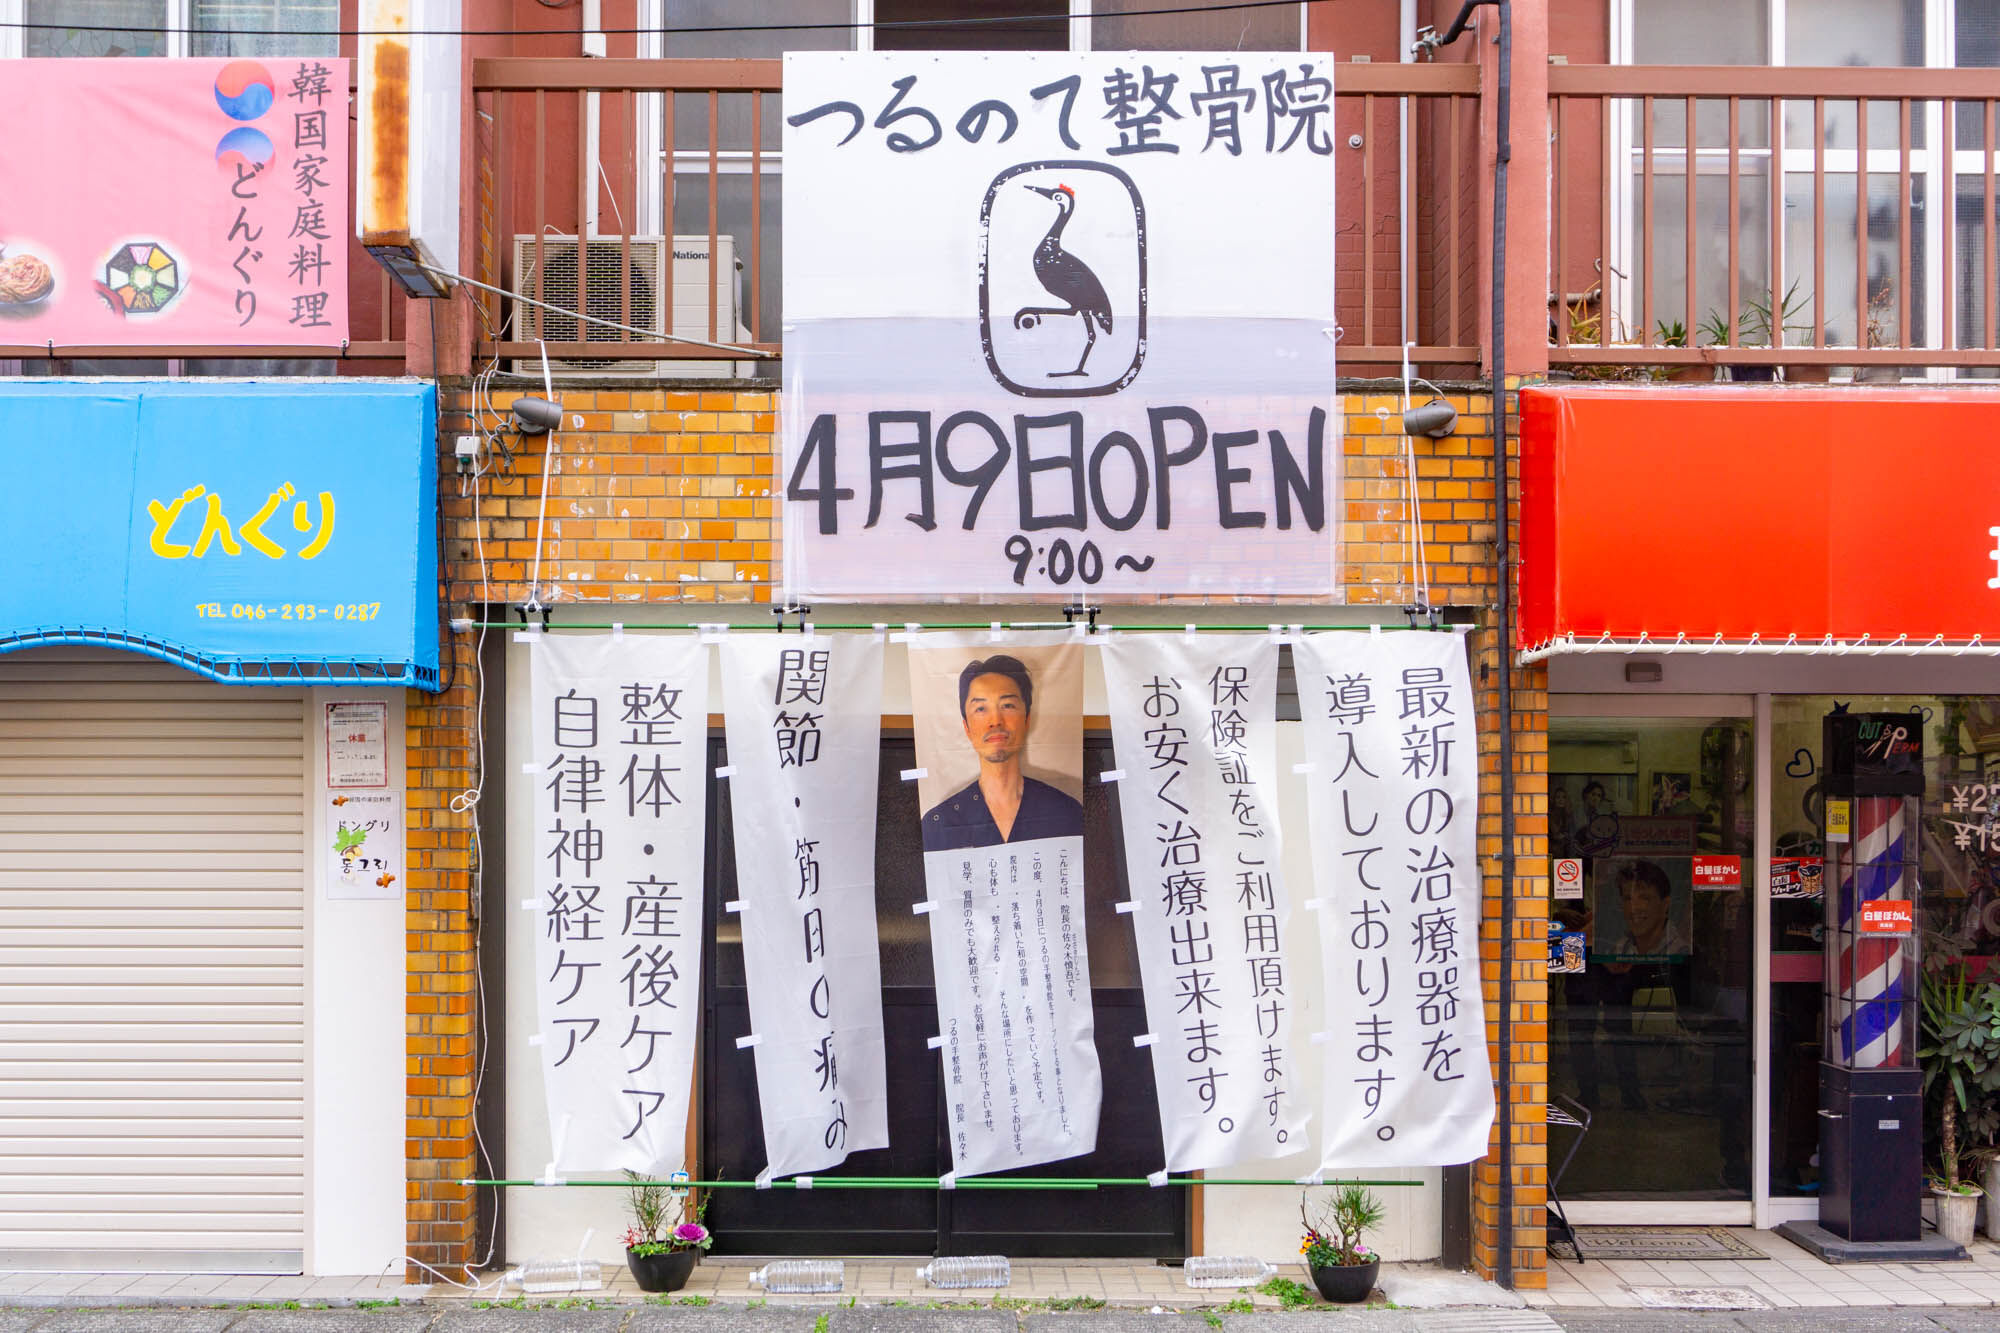 韓国家庭料理
どんぐり
National
つるのて整骨院
4月9日OPEN
9:00〜
どんぐり
TEL 046-293-0287
休業
韓国の家庭料理
ドングリ
동그리
整体・産後ケア
自律神経ケア
関節・筋肉の痛み
こんにちは、院長の佐々木慎吾です。
この度、4月9日につるの手整骨院をオープンする事となりました。
院内は、落ち着いた和の空間、を作っていく予定です。
心も体も、整えられる、そんな場所にしたいと思っております。
見学、質問のみでも大歓迎です。お気軽にお声がけ下さいませ。
つるの手整骨院 院長 佐々木
保険証をご利用頂けます。
お安く治療出来ます。
最新の治療器を
導入しております。
CUT &
PERM
白髪ぼかし
白髪ぼかし
Welcome